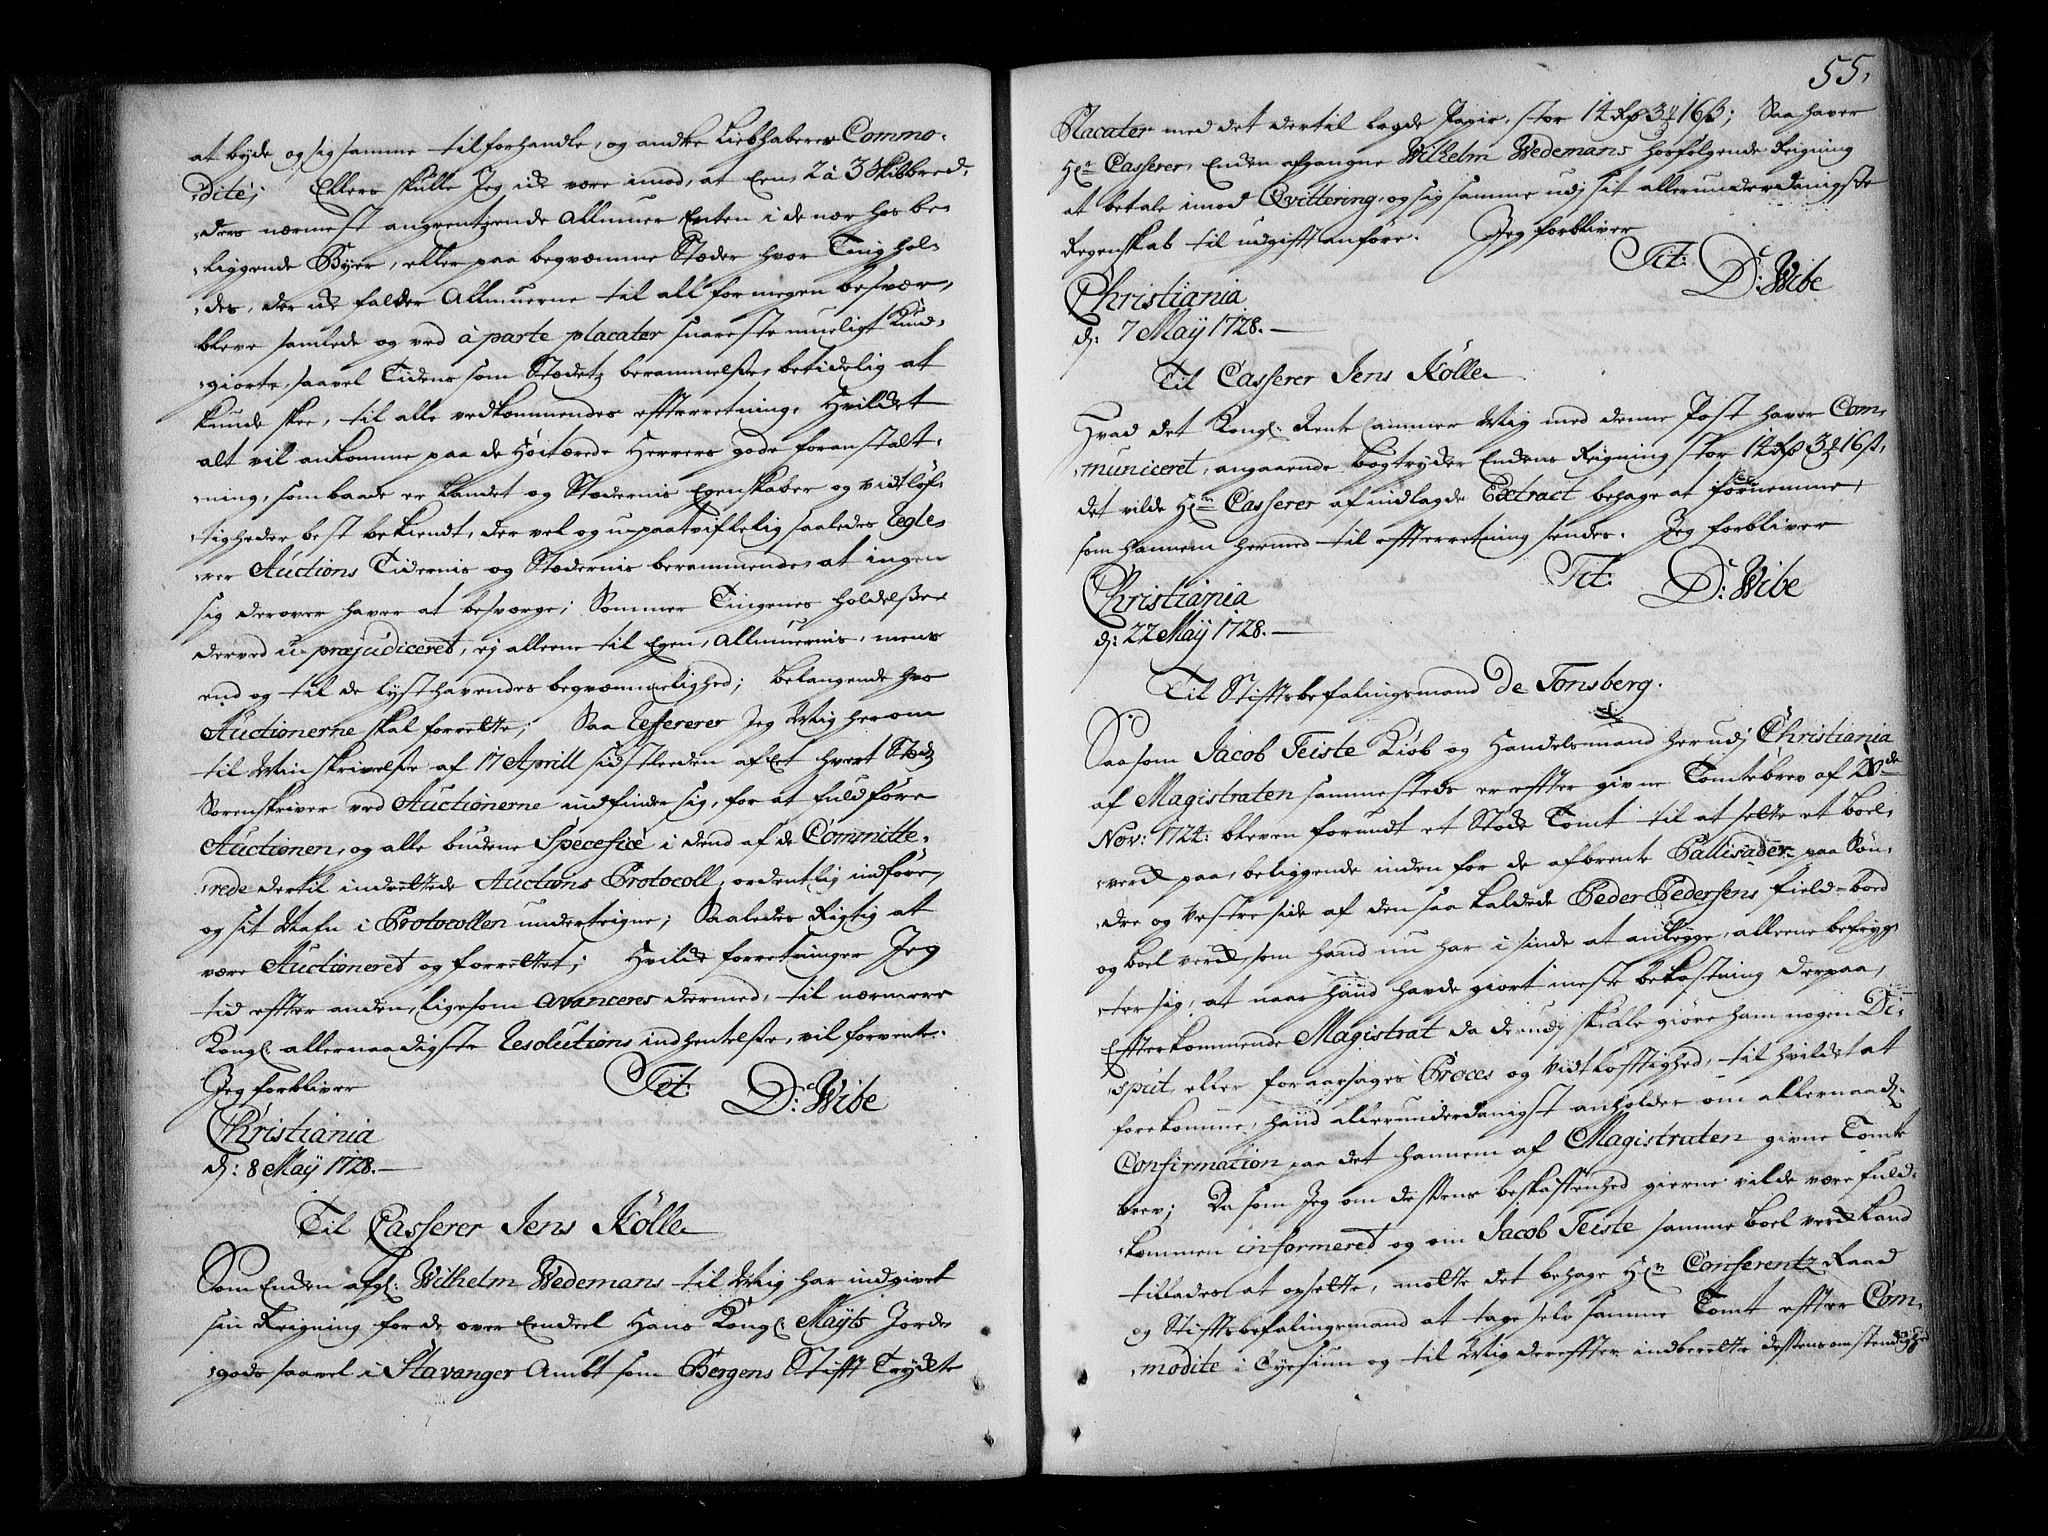 at byde og sig samme til forhandle, og andre Liebhaberes Commo-
dite; Ellers skulle Jeg icke være imod, at Een, 2 à 3 Skibbred-
ders nærmest angrentzende Allmuer Enten i de nær hos be-
liggende Byer, eller paa begvemme Stæder hvor Ting hol-
des, der icke falder Allmuerne til all for megen besvær,
bleve samlede og ved à parte placater snareste mueligst Kund-
giorte, saavel Tidens som Stædetz berammelse, betidelig at
kunde skee, til alle vedkommendes efterretning. Hvilcket
alt vil ankomme paa de Høitærede Herrers gode foranstalt-
ning, som baade er Landet og Stædernis Egenskaber og vidtløf-
tigheder best bekiendt, der vel og upaatvifflelig saaledes Regle-
rer Auctions Tidernis og Stædernis berammende, at ingen
sig derover haver at besværge; Sommer Tingenes holdelse
derved u-præjudiceret, ej alleene til Egen, Allmuernis, mens
end og til de lysthavendes begvemmelighed; Belangende hvo
Auctionerne skal forrette; Saa Refererer Jeg Mig herom
til Min skrivelse af 17 Aprill sidstleeden at Et hvert Stædz
Sorenskriver ved Auctionerne indfinder sig, for at fuldføre
Auctionen, og alle budene Specefice i dend af de Committe-
rede dertil indrettede Auctions Protocoll, ordentlig indføre,
og sit Nafn i Protocollen underteigne; Saaledes Rigtig at
være Auctioneret og forrettet; Hvilcke forretninger Jeg
tid effter anden, ligesom avanceres dermed, til nærmere
Kongl: allernaadigste Resolutions indhentelse, vil forvente.
Jeg forbliver Tit: D: Wibe
Christiania
d: 8 May 1728.
Til Casserer Jens Kølle
Som Enden afgl: Wilhelm Wedemans til Mig har indgivet
sin Reigning for de over Eendeel Hans Kongl: Mayts Jorde-
gods saavel i Stavanger Ambt som Bergens Stifft Tryckte
55.
Placater med det dertil lagde Papir, stor 14 Rd 3 ₰ 16 ß; Saa haver
Hr Casserer, Enden afgangne Wilhelm Wedemans hosfølgende Reigning
at betale imod Qvittering, og sig samme udj sit allerunderdanigste
Regenskab til udgifft anføre. Jeg forbliver
Tit: D: Wibe
Christiania
d: 7 May 1728.
Til Casserer Jens Kølle
Hvad det Kongl: Rente Cammer Mig med denne Post haver Com-
municeret, angaaende bogtrycker Endens Reigning stor 14 Rd 3 ₰ 16 ß,
det vilde Hr Casserer af indlagde Extract behage at fornemme,
som hannem hermed til effterretning sendes. Jeg forbliver
Tit: D: Wibe
Christiania
d: 22 May 1728.
Til Stifftsbefalingsmand de Tonsberg.
Saasom Jacob Teiste Kiøb og Handelsmand her udj Christiania
af Magistraten sammesteds er effter givne Tomtebrev af 20de
Nov: 1724: bleven forundt et Støcke Tomt til at sette et Boel-
verck paa, beliggende inden for de afbrente Pallisader paa Søn-
dre og Vestre side af den saa kaldede Peder Pedersens field-bord
og boelverck, som hand nu har i sinde at anlegge, alleene befryg-
ter sig, at naar hand havde giort meste bekostning derpaa,
Effterkommende Magistrat da derudj skulle giøre ham nogen Di-
sput, eller foraarsages Proces og vidtløfftighed, til hvilcket at
forekomme, hand allerunderdanigst anholder om allernaadl:
Confirmation paa det hannem af Magistraten givne Tomte
brev; Da som Jeg om dessens beskaffenhed gierne vilde være fuld-
kommen informeret og om Jacob Teiste samme boelverck kand
tillades at opsette, motte det behage Hr Conferentz Raad
og Stifftsbefalingsmand at tage selv samme Tomt effter Com-
modite i Øyesiun og til Mig dereffter indberette dessens omstendighed